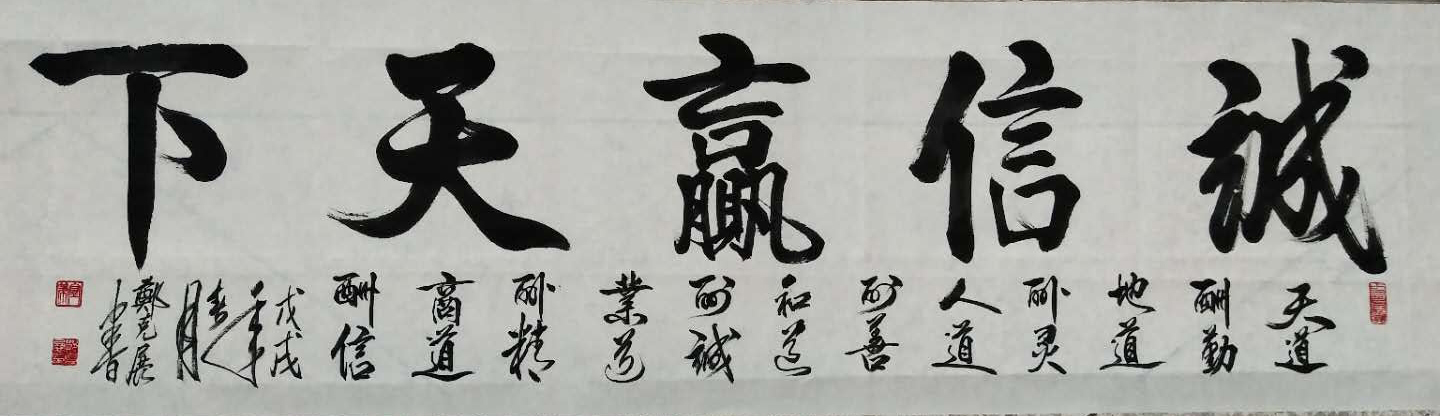 誠信贏天下
天道
酬勤
地道
酬灵
人道
酬善
和道
酬誠
業道
酬精
商道
酬信
戊戌
年
鄭克展
書